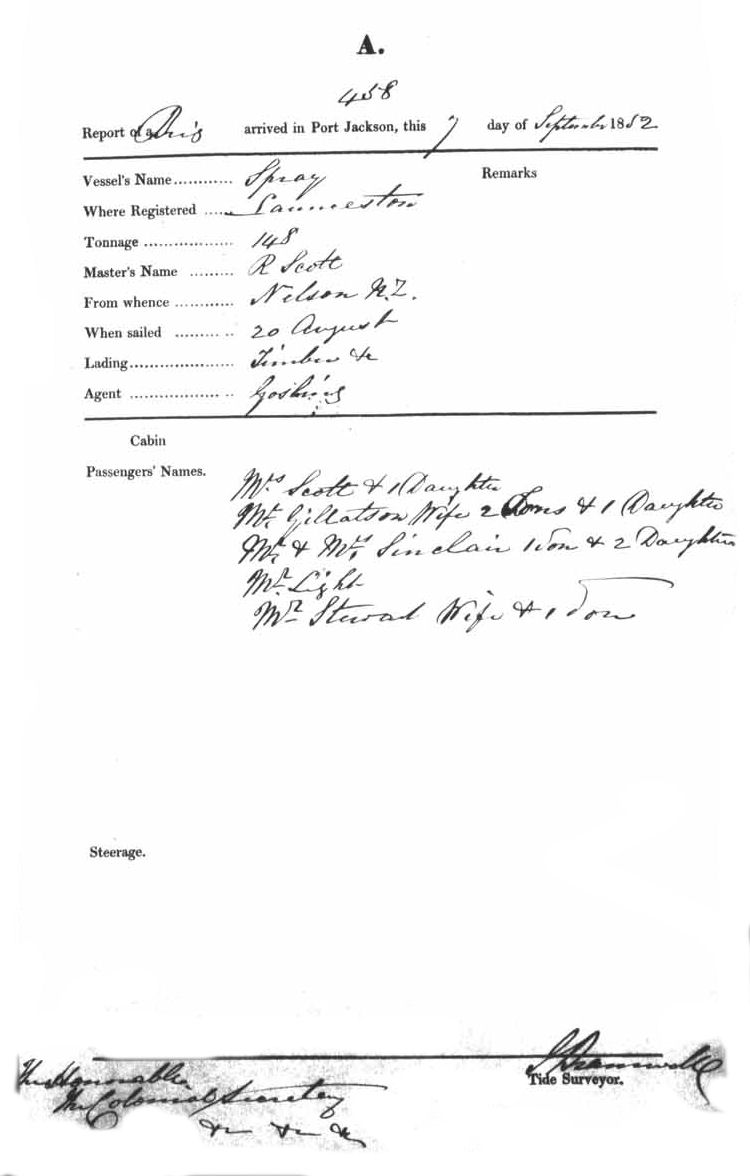 A.
458
Report of a Brig arrived in Port Jackson, this 7 day of September 1852
Vessel's Name............ Spray Remarks
Where Registered ...... Launceston
Tonnage .................. 148
Master's Name ......... R Scott
From whence ............ Nelson N.Z.
When sailed ......... .. 20 August
Lading..................... Timber &c
Agent ................... .. Gosling
Cabin
Passengers' Names.
Mrs Scott & 1 Daughter
Mr Gillatson Wife 2 Sons & 1 Daughter
Mr & Mrs Sinclair 1 Son & 2 Daughters
Mr Light
Mr Steward Wife & 1 Son
Steerage.
Tide Surveyor.
The Honorable
The Colonial Secretary
&c &c &c